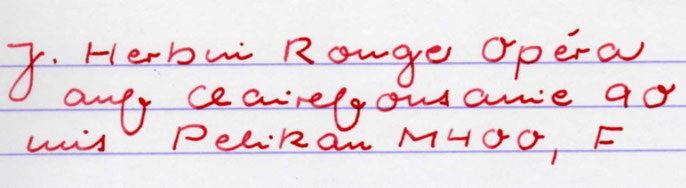 J. Herbin Rouge Opéra
auf Clairefontaine 90
mit Pelikan M400, F